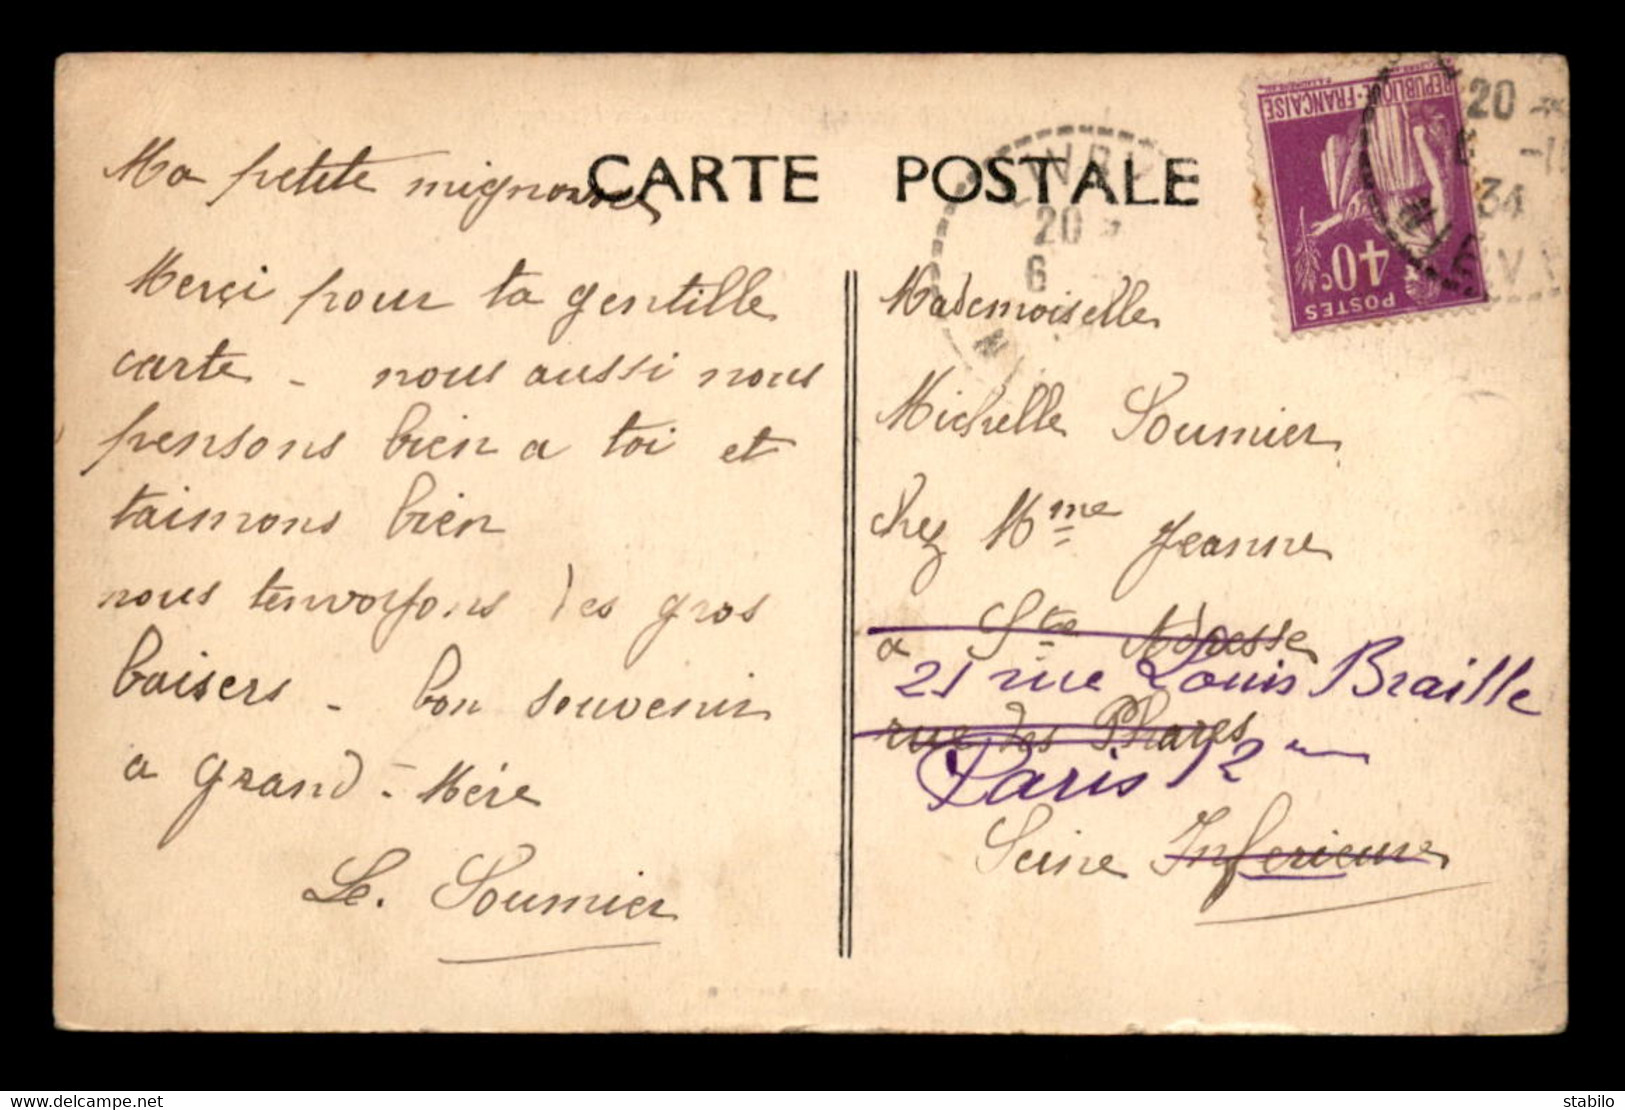 CARTE POSTALE
Ma petite mignonne
Merçi pour ta gentille
carte - nous aussi nous
pensons bien a toi et
taimons bien
nous tenvoyons des gros
baisers - bon souvenir
a grand-Mére
Le. Soumier
REPUBLIQUE·FRANÇAISE
40c
POSTES
20
6
20
6 -11
34
NIEVRE
Mademoiselle
Michelle Soumier
chez Mme Jeanne
a Ste Adresse
21 rue Louis Braille
rue des Phares
Paris 12me
Seine Inferieure
www.delcampe.net
stabilo